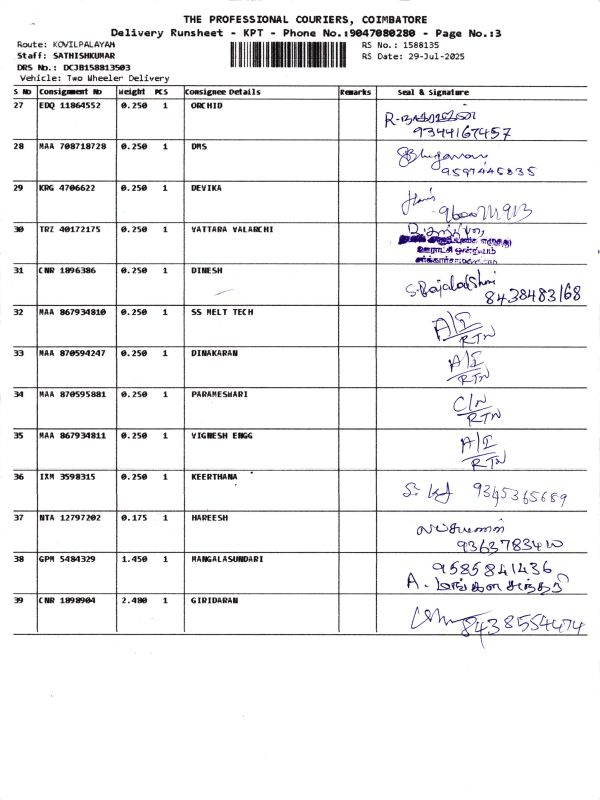 THE PROFESSIONAL COURIERS, COIMBATORE
Delivery Runsheet - KPT - Phone No.:9047080280 - Page No.:3
Route: KOVILPALAYAM
RS No.: 1588135
Staff: SATHISHKUMAR
RS Date: 29-Jul-2025
DRS No.: DCJB158813503
Vehicle: Two Wheeler Delivery
S No Consignment No Weight PCS Consignee Details Remarks Seal & Signature
27 EDQ 11864552 0.250 1 ORCHID
9344167457
28 MAA 708718728 0.250 1 DMS
9597446835
29 KRG 4706622 0.250 1 DEVIKA
30 TRZ 40172175 0.250 1 VATTARA VALARCHI
31 CNR 1896386 0.250 1 DINESH S.Rajalakshmi
8438483168
32 MAA 867934810 0.250 1 SS MELT TECH A/I
RTN
33 MAA 870594247 0.250 1 DINAKARAN A/I
RTN
34 MAA 870595881 0.250 1 PARAMESWARI C/N
RTN
35 MAA 867934811 0.250 1 VIGNESH ENGG A/I
RTN
36 IXM 3598315 0.250 1 KEERTHANA 9345365689
37 NTA 12797202 0.175 1 HAREESH
38 GPM 5484329 1.450 1 MANGALASUNDARI 9585841436
A. மங்களசுந்தரி
39 CNR 1898904 2.480 1 GIRIDARAN
8438554474